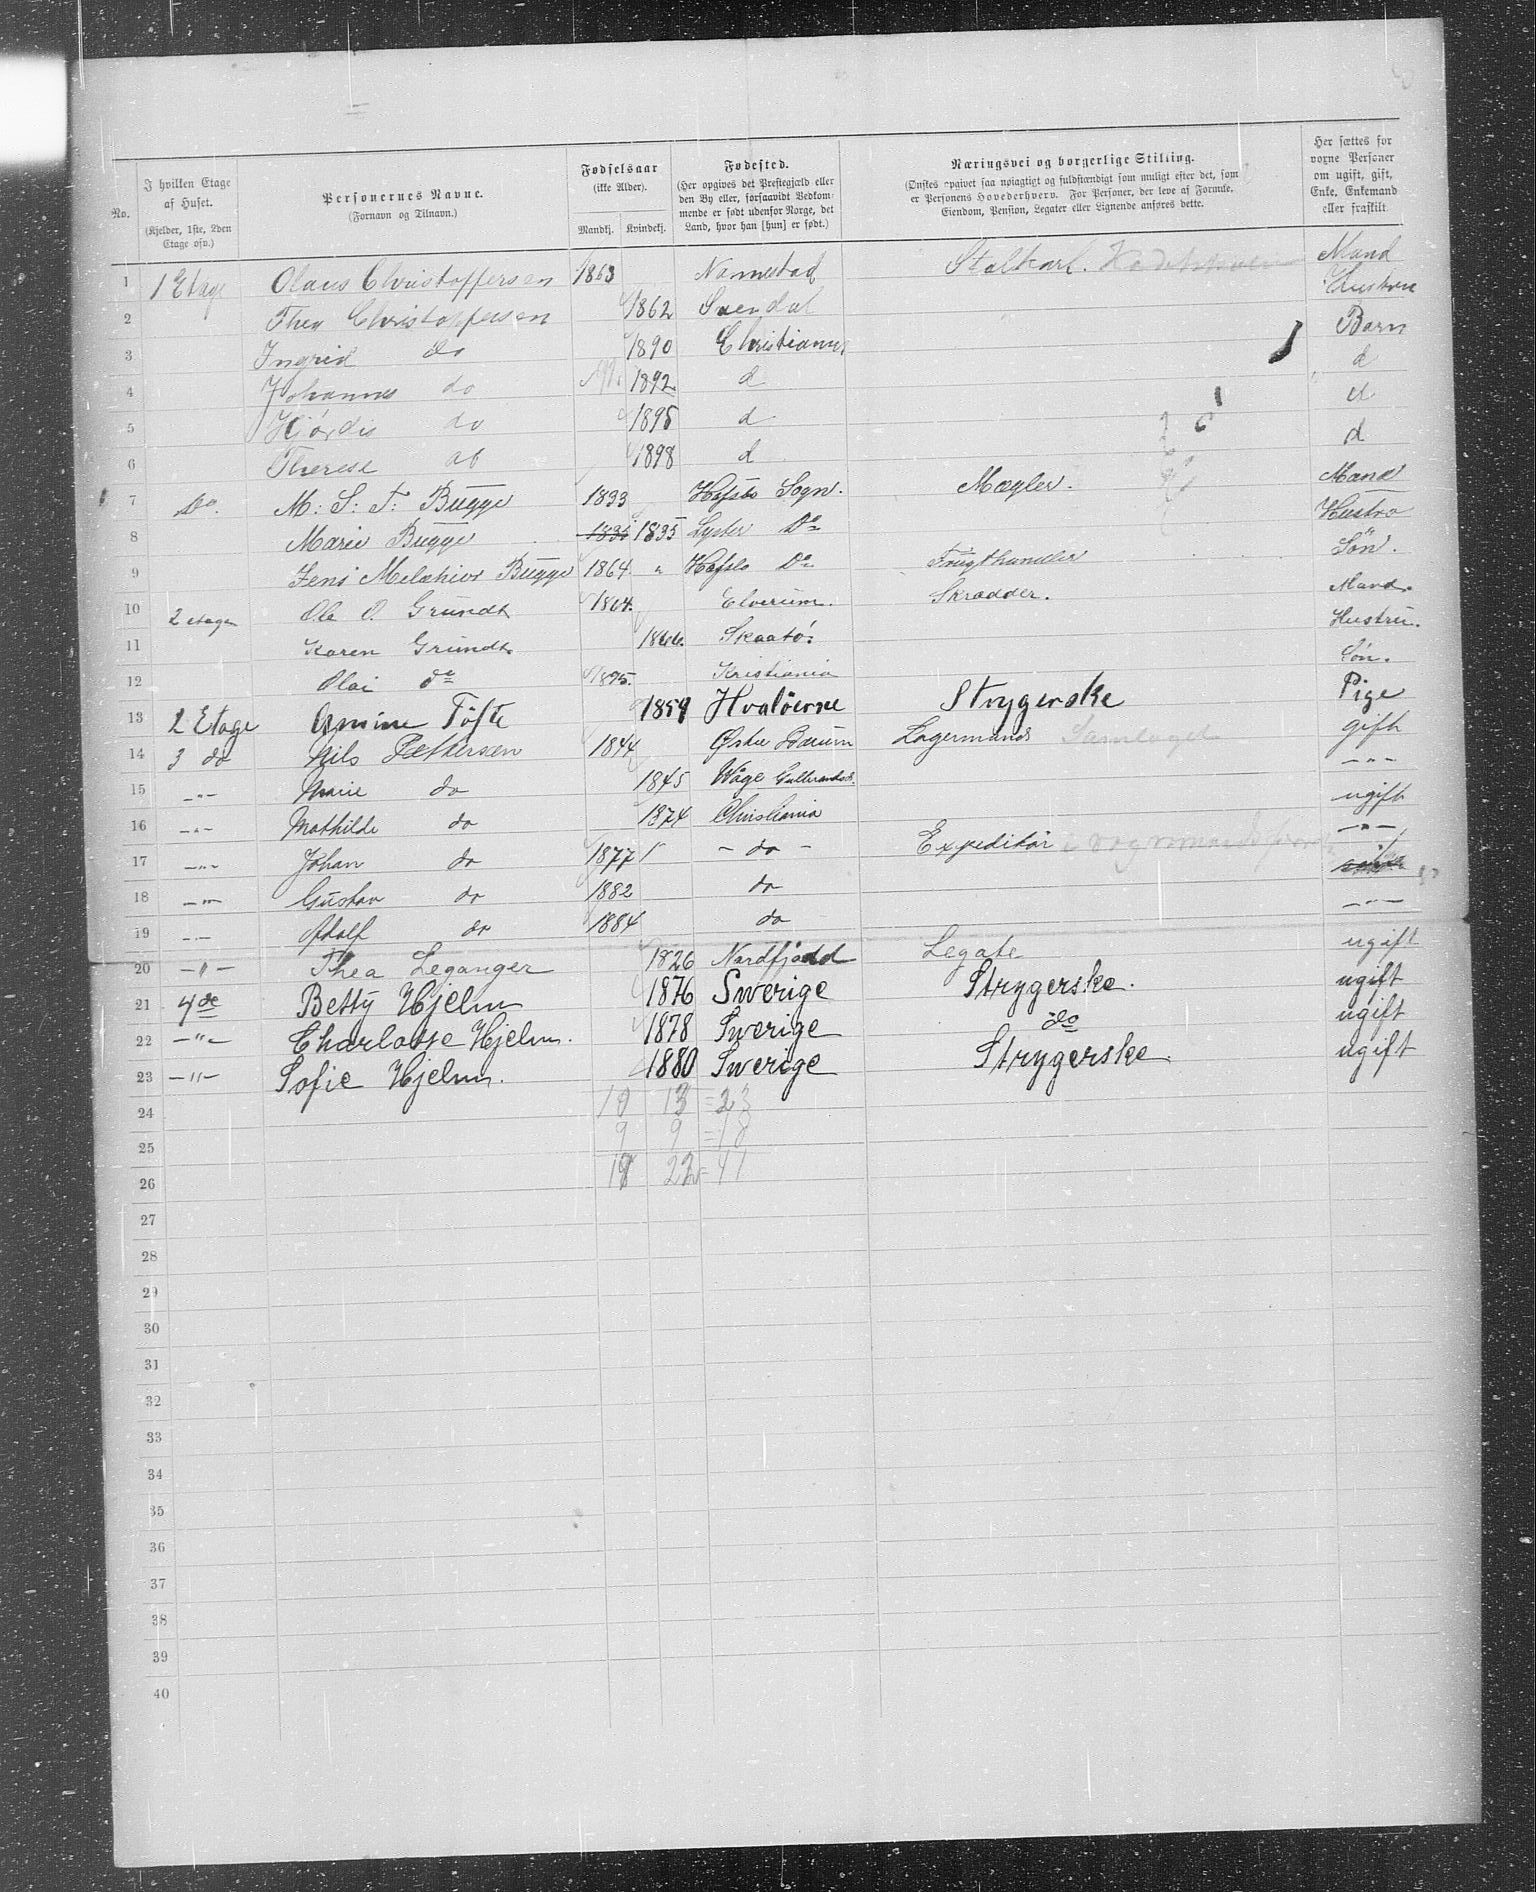 No.
I hvilken Etage af Huset.
(Kjelder, 1ste, 2den Etage osv.)
Personernes Navne.
(Fornavn og Tilnavn.)
Fødselsaar
(ikke Alder).
Mandkj. Kvindekj.
Fødested.
(Her opgives det Prestegjæld eller den By eller, forsaavidt Vedkommende er født udenfor Norge, det Land, hvor han [hun] er født.)
Næringsvei og borgerlige Stilling.
(Ønskes opgivet saa nøiagtigt og fuldstændigt som muligt efter det, som er Personens Hovederhverv. For Personer, der leve af Formue, Eiendom, Pension, Legater eller Lignende anføres dette.
Her sættes for voxne Personer om ugift, gift, Enke, Enkemand eller fraskilt.
1 1 Etage Olaus Christoffersen 1863 Namestad Stalkarl. Mand
2 Thea Christoffersen 1862 Svendal Hustru
3 Ingrid do 1890 Christiania Barn
4 Johannes do 1892 d d
5 Hjørdis do 1895 d d
6 Therese do 1898 d d
7 Do. M: S: T: Bugge 1833 Hafslo Sogn. Mægler. Mand
8 Marie Bugge 1835 1835 Lyster Do Hustro
9 Jens Melchior Bugge 1864 " Hafslo Do Frugthandler Søn.
10 2 etage Ole O. Grundt 1864. Elverum. Skrædder. Mand.
11 Karen Grundt. 1866. Skaatø. Hustru.
12 Olai do 1895. Kristiania Søn.
13 2 Etage Amine Tøfte 1859 Hvaløerne Strygerske Pige
14 3 do Nils Pettersen 1844 Østre Bærum Lagermand Samlaget gift
15 -"- Marie do 1845 Wåge Gulbrandsd. -"-
16 -"- Mathilde do 1874 Christiania ugift
17 -"- Johan do 1877 - do - Expeditør -"-
18 -"- Gustav do 1882 do
19 -"- Adolf do 1884 do -"-
20 -"- Thea Leganger 1826 Nordfjord Legate ugift
21 4 de Betty Hjelm 1876 Swerige Strygerske. ugift
22 -"- Charlotte Hjelm. 1878 Swerige do ugift
23 -"- Sofie Hjelm. 1880 Swerige Strygerske. ugift
24 10 13 = 23
25 9 9 = 18
26 19 22 = 41
27
28
29
30
31
32
33
34
35
36
37
38
39
40